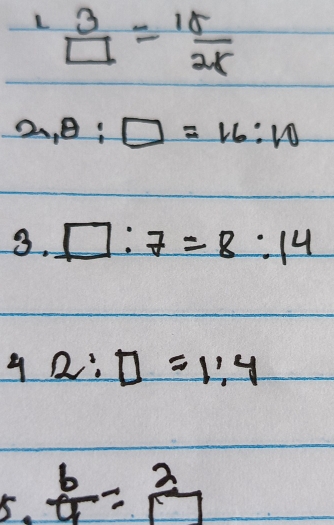 1. 3/□ = 15/25
2. 8 : □ = 16 : 10
3. □ : 7 = 8 : 14
4 2 : □ = 1 : 4
5. 6/9 = 2/□